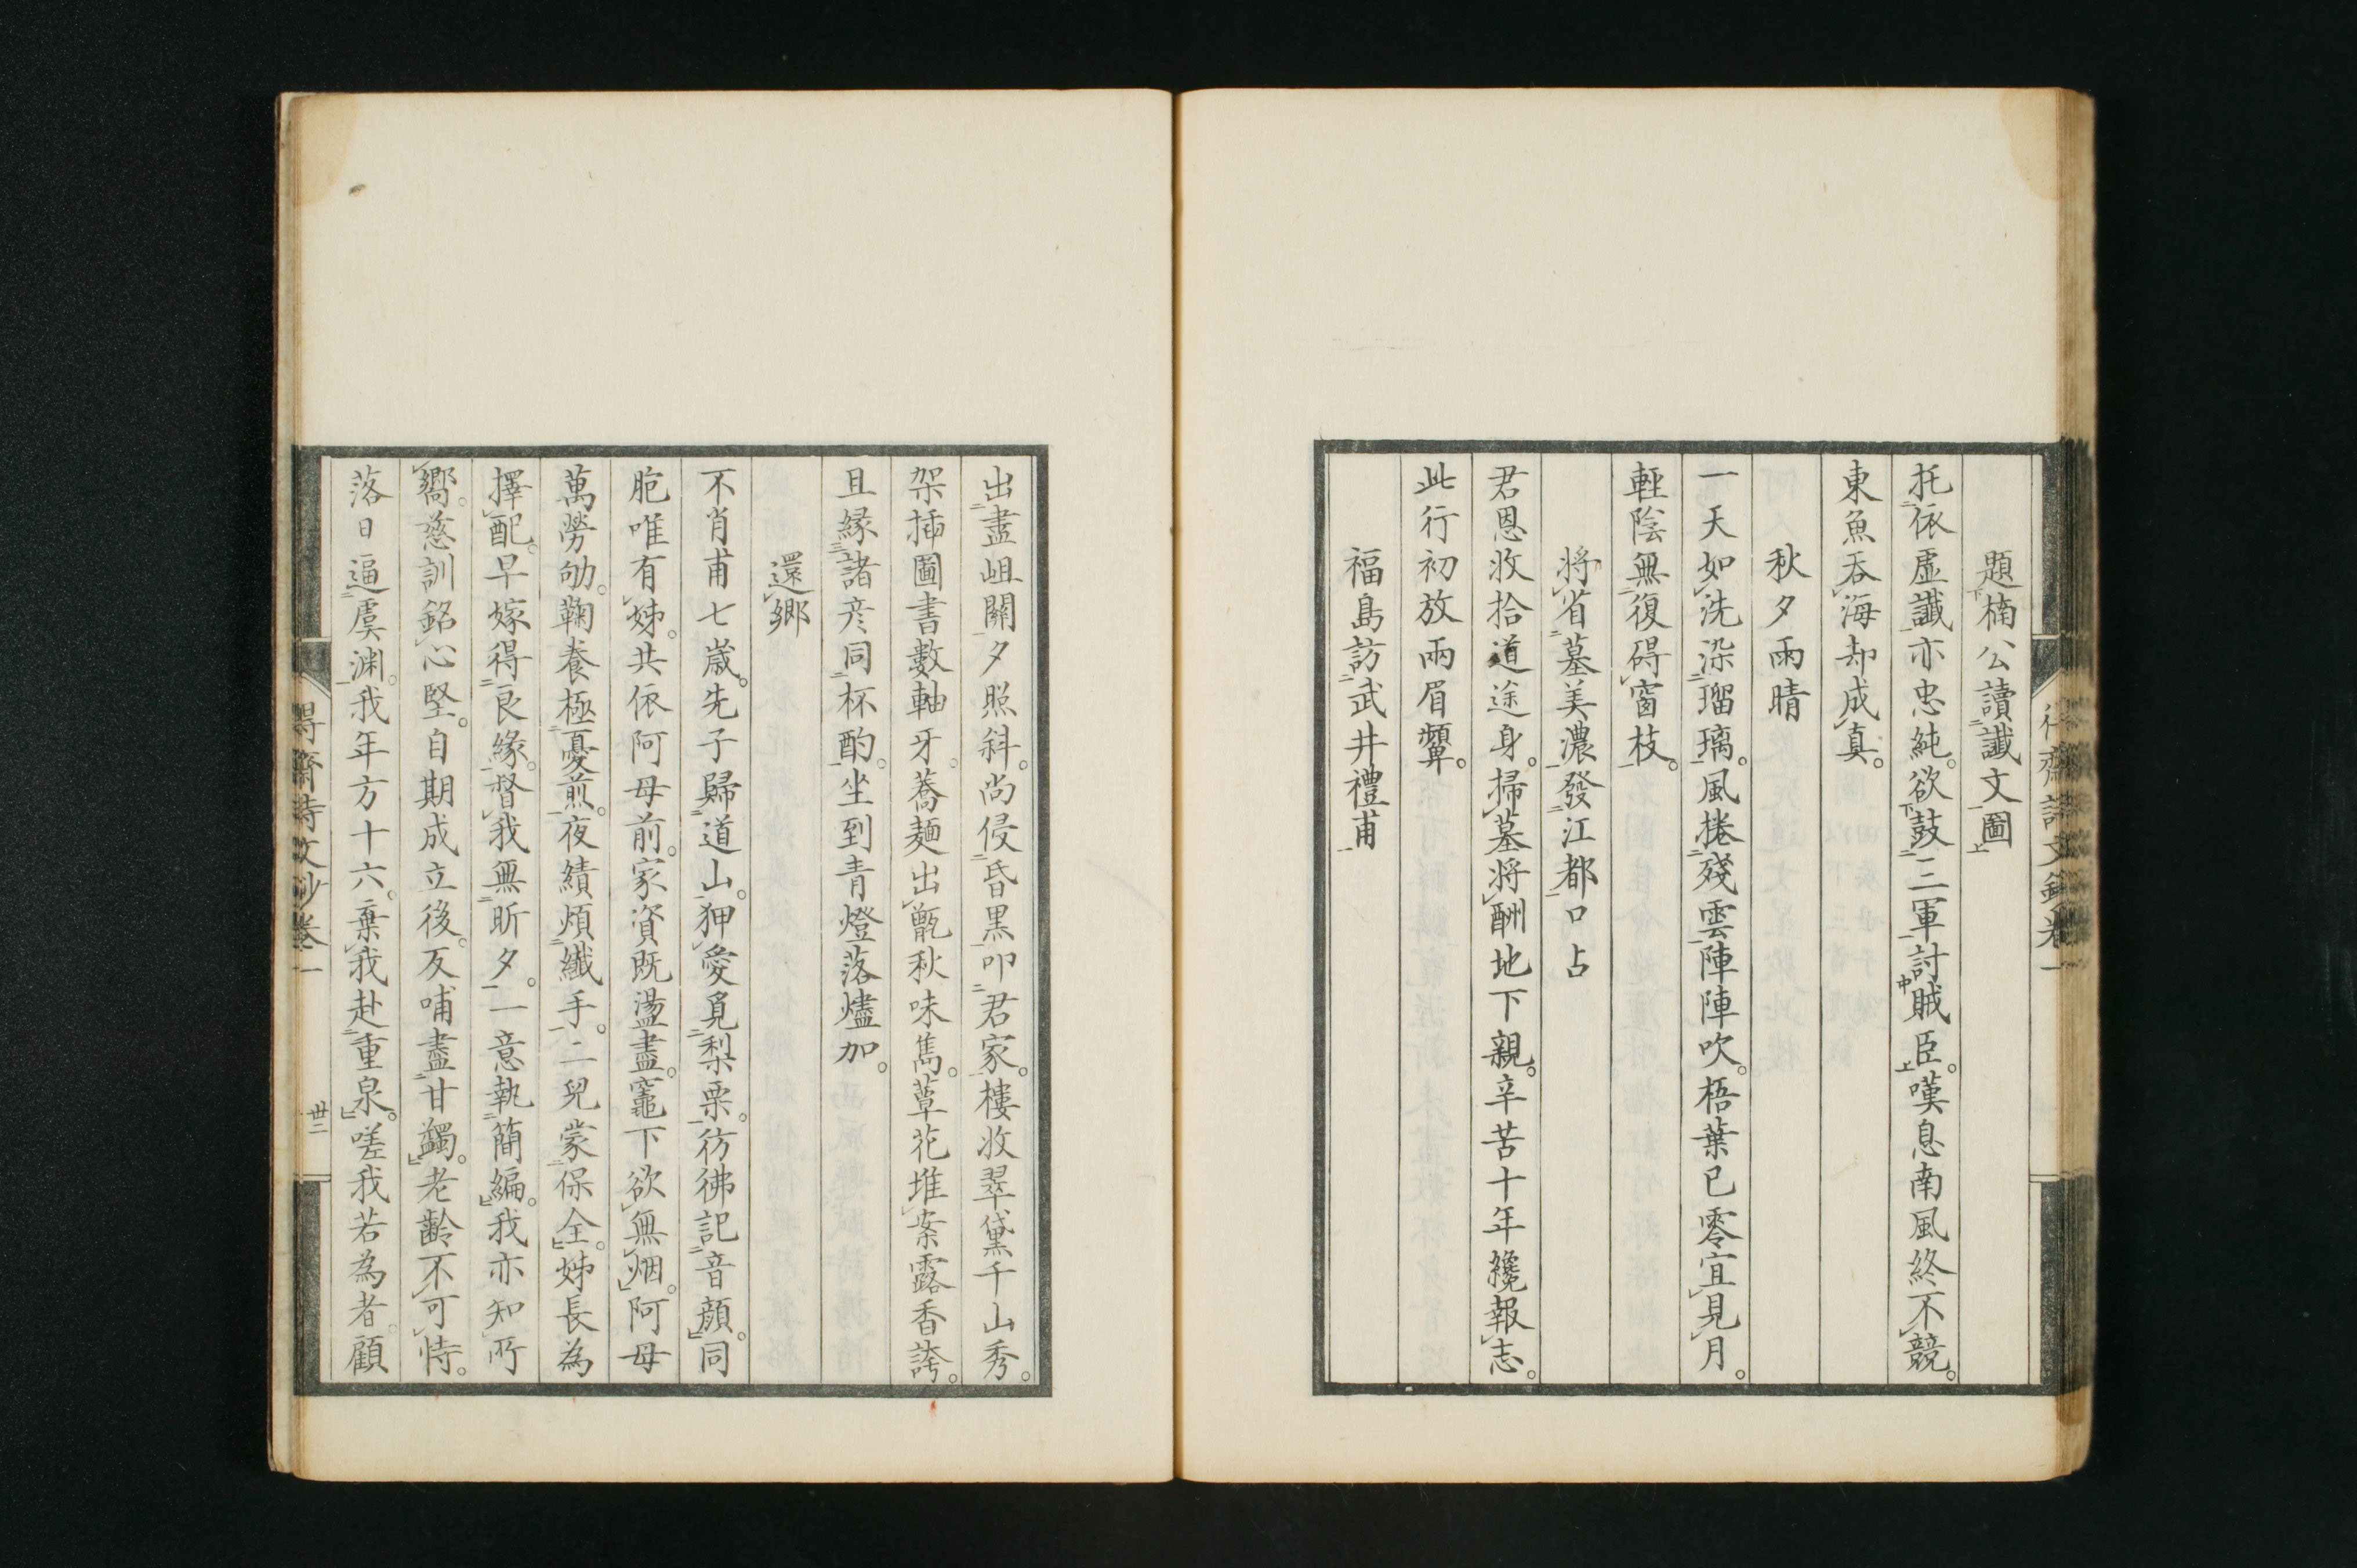 題楠公讀讖文圖
托依虛讖亦忠純。欲鼓三軍討賊臣。嘆息南風終不競。
東魚呑海却成真。
秋夕雨晴
一天如洗染瑠璃。風捲殘雲陣陣吹。梧葉已零宜見月。
輕陰無復碍窗枝。
将省墓美濃發江都口占
君恩收拾道途身。掃墓将酬地下親。辛苦十年纔報志。
此行初放兩眉顰。
福島訪武井禮甫
出盡岨關夕照斜。尚侵昏黒叩君家。樓收翠黛千山秀。
架插圖書數軸牙。蕎麺出甑秋味雋。蕈花堆案露香誇。
且緣諸彦同杯酌。坐到青燈落燼加。
還鄉
不肖甫七歳。先子歸道山。狎愛覓梨栗。彷彿記音顔。同
胞唯有姊。共依阿母前。家資既盪盡。竈下欲無烟。阿母
萬勞劬。鞠養極憂煎。夜績煩纖手。二兒蒙保全。姊長為
擇配。早嫁得良緣。督我無昕夕。一意執簡編。我亦知所
嚮。慈訓銘心堅。自期成立後。反哺盡甘蠲。老齡不可恃。
落日逼虞淵。我年方十六。棄我赴重泉。嗟我若為者。顧
得齋詩文鈔卷一
卅二